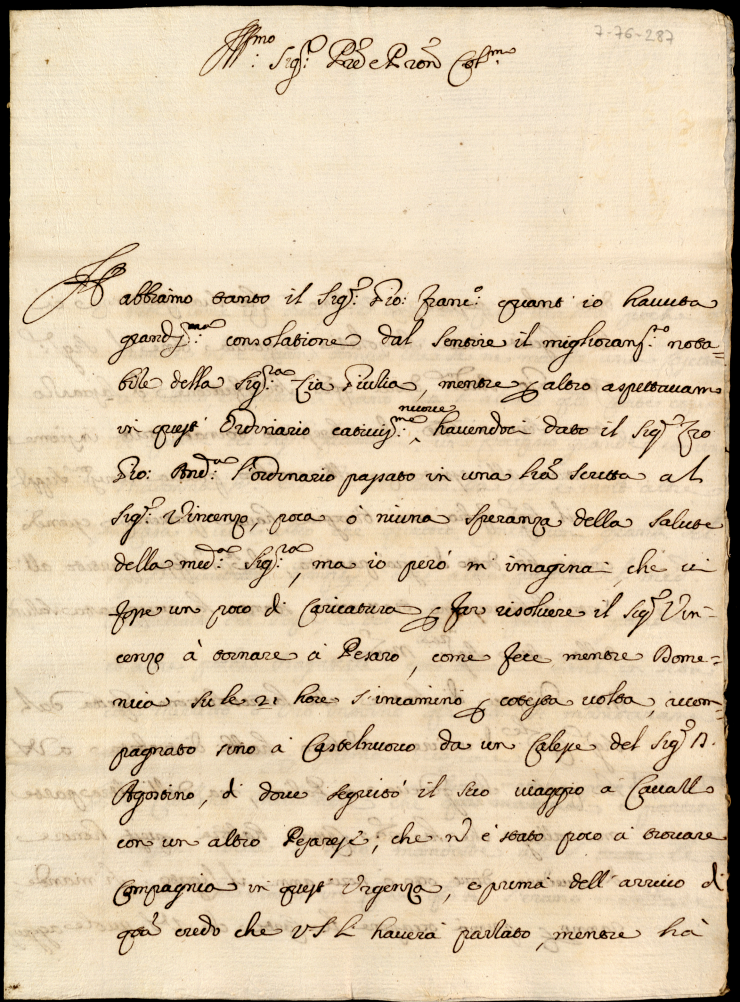 7-76-287
Ill.mo Sig.r Prõe e Pron Col.mo
Habbiamo tanto il Sig.r Gio: Franc.o quant' io havuta
grandiss.ma consolatione dal sentire il miglioram.to nota=
bile della Sig.ra Zia Giulia, mentre p altro aspettavam
in quest' Ordinario cativiss.me nuove, havendoci dato il Sig.r Fro
Gio: And.a l'ordinario passato in una lrã scritta al
Sig.r Vincenzo, poca ò niuna speranza della salute
della med.a Sig.ra, ma io però m' imaginai, che vi
fosse un poco di Caricatura p far risolvere il Sig.r Vin=
cenzo à tornare à Pesaro, come fece mentre Dome=
nica su le 21 hore s' incaminò p cotesta volta, accom=
pagnato sino à Castelnuovo da un Calesse del Sig.r D.
Agostino, di dove seguitò il suo viaggio à Cavallo
con un altro Pesarese, che nò è stato poco à trovare
Compagnia in quest' Urgenza, e prima dell' arrivo di
qta credo che V.S. Ill. haverà parlato, mentre hà